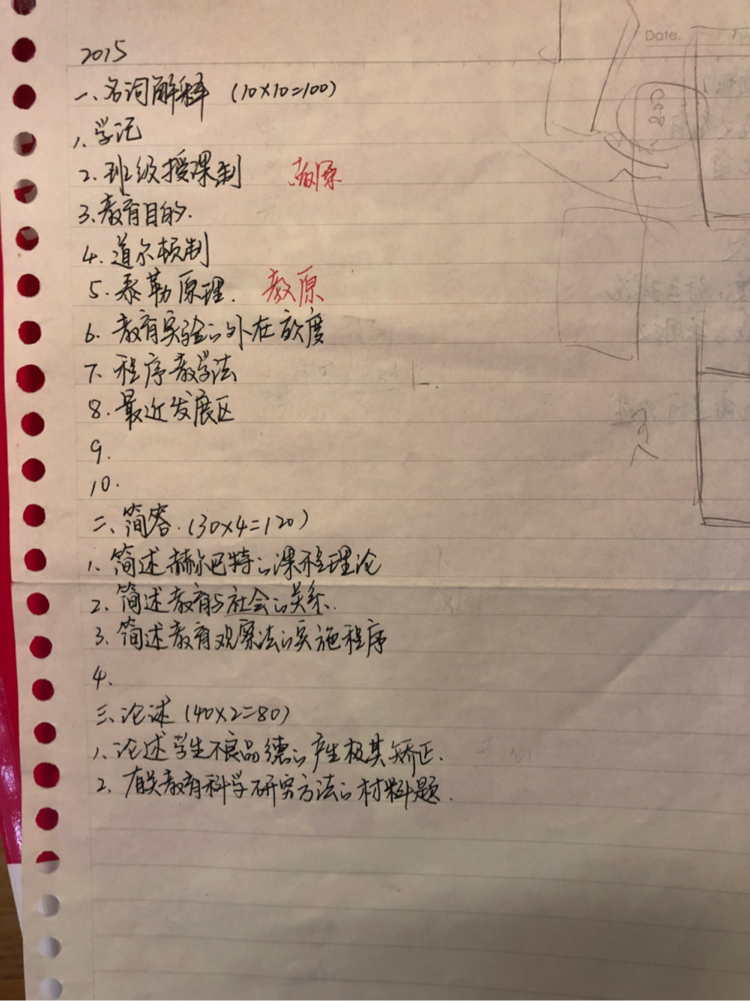 Date.
2015
一、名词解释 (10×10=100)
1、学记
2、班级授课制 教原
3、教育目的.
4、道尔顿制
5、泰勒原理. 教原
6、教育实验的外在效度
7、程序教学法
8、最近发展区
9.
10.
二、简答.(30×4=120)
1、简述赫尔巴特的课程理论
2、简述教育与社会的关系.
3、简述教育观察法的实施程序
4.
三、论述 (40×2=80)
1、论述学生不良品德的产生极其矫正.
2、有关教育科学研究方法的材料题.